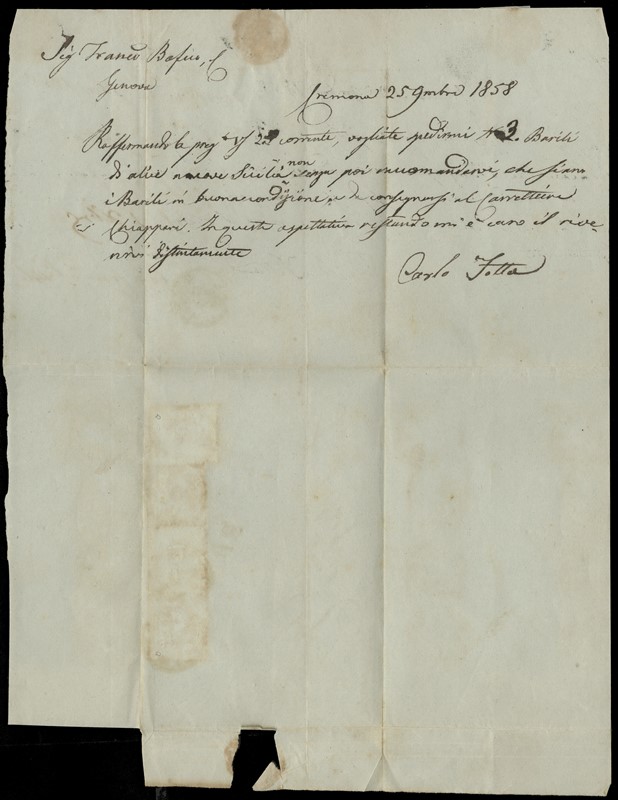 Sig. Franco Bafico,
Genova
Cremona 25 9mbre 1858
Raffermando la preg. corrente, vogliate spedirmi N. 3 Barili
d'alici nuove Sicilia non senza poi raccomandarvi, che siano
i Barili in buona condizione e da consegnarsi al Carrettiere
Chiappari. In questa aspettativa restando mi è caro il rive-
rirvi distintamente
Carlo Fotta